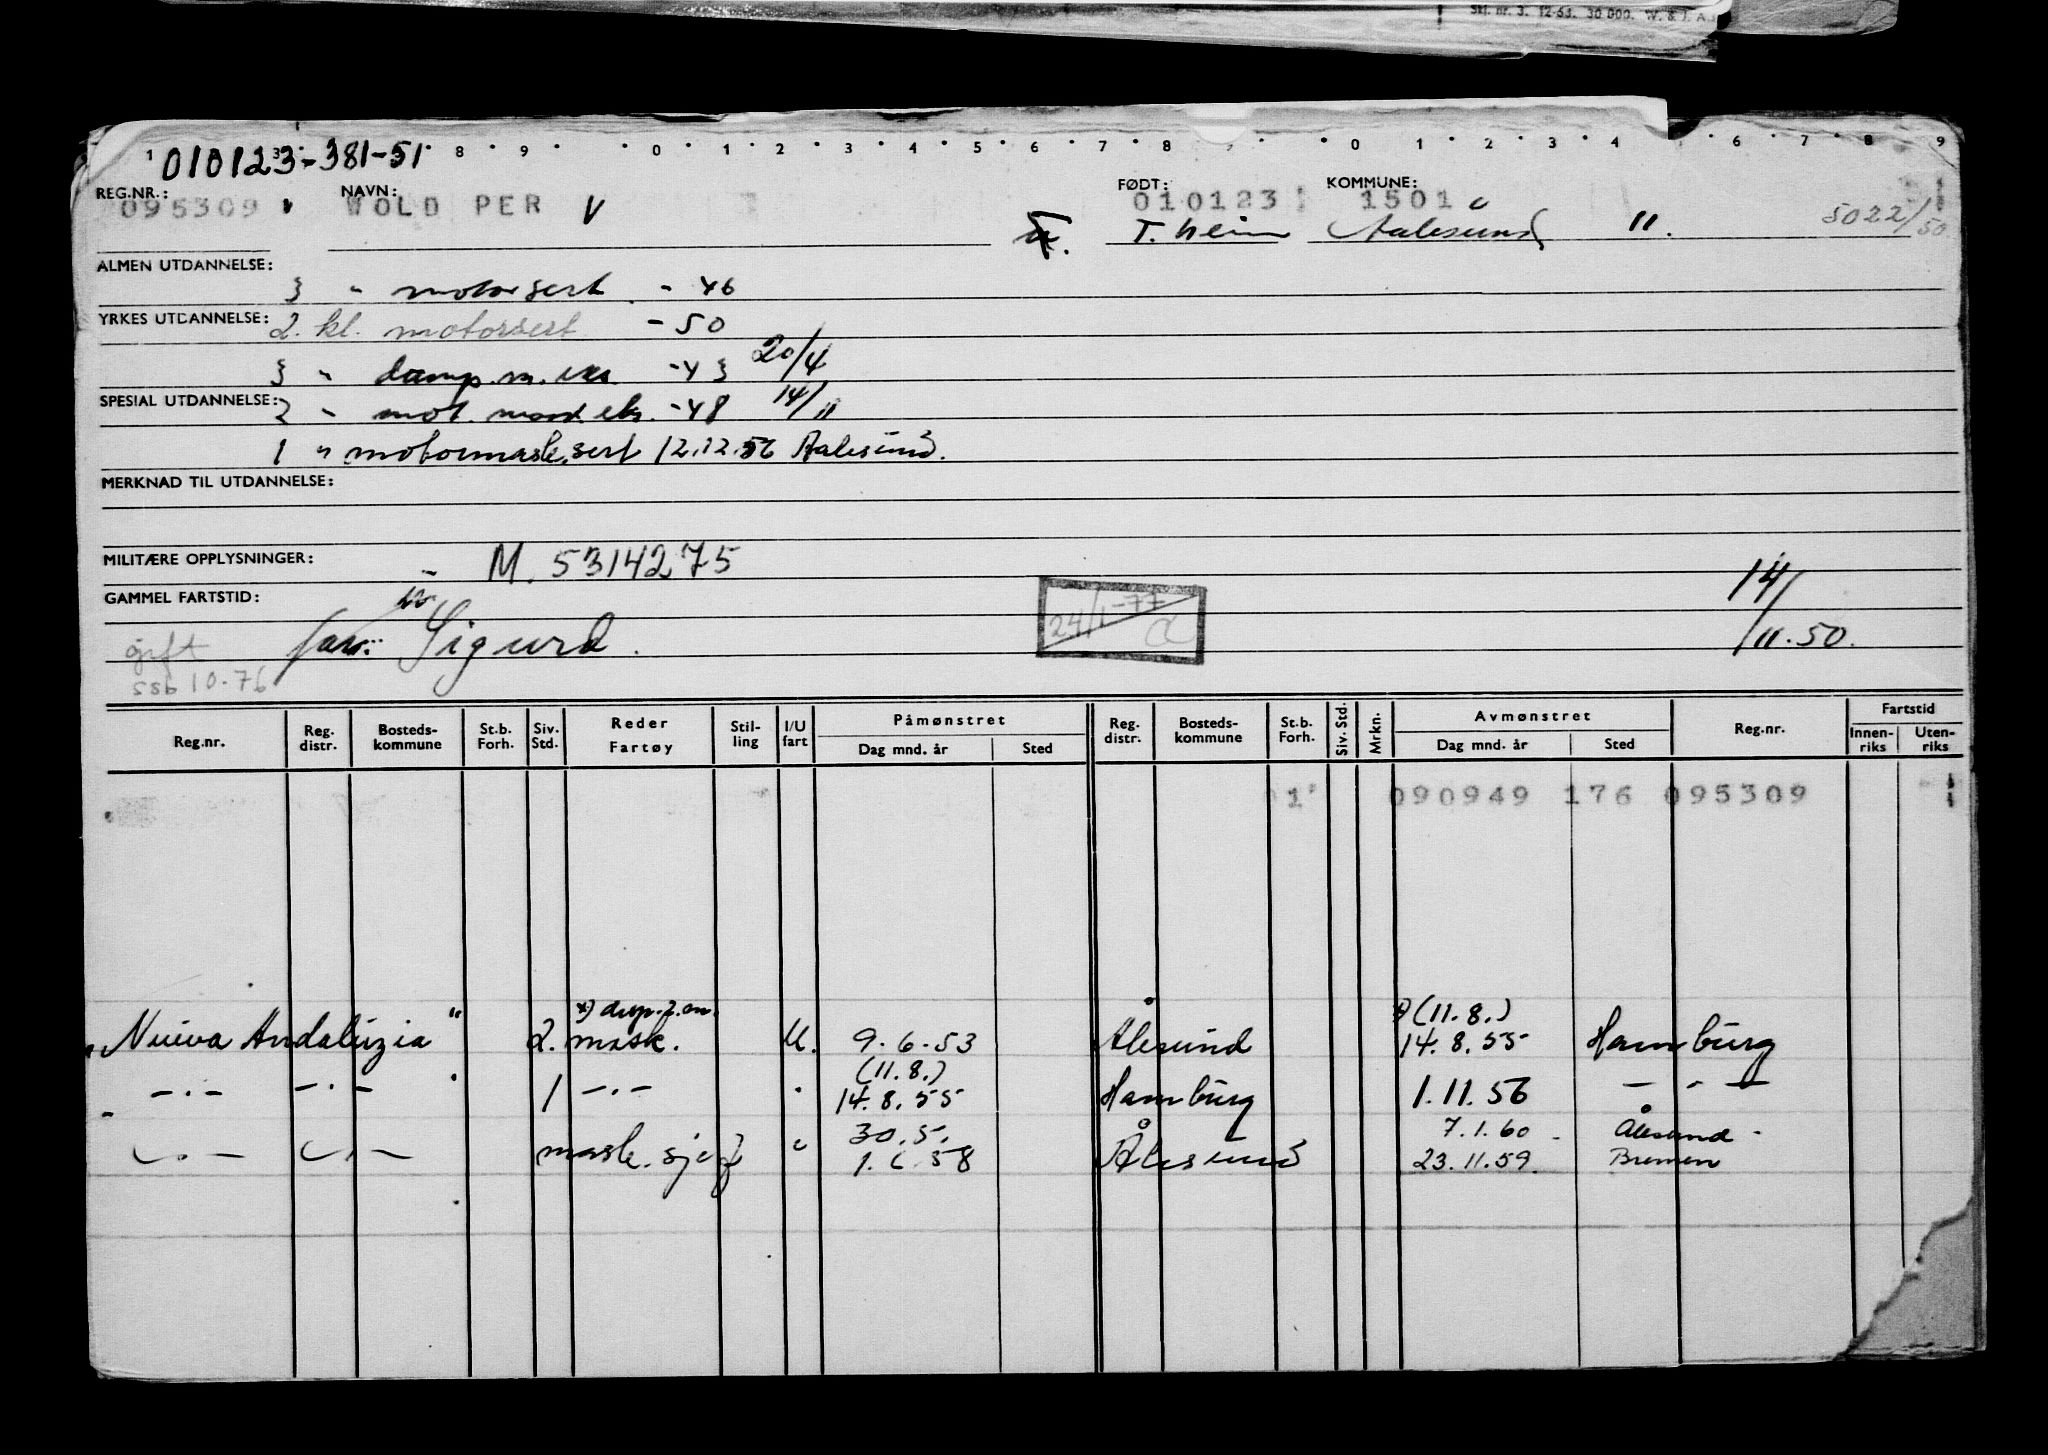 Skj. nr. 3. 12-63. 30 000. W. & J. A.
1 3 8 9 0 1 2 3 4 5 6 7 8 0 1 2 3 4 6 7 8 9
010123-381-51
REG.NR.: NAVN: FØDT: KOMMUNE:
095309 WOLD PER V 010123 1501
T.heim Aalesund 11. 5022/50
ALMEN UTDANNELSE:
3 " motorsert. - 46
YRKES UTDANNELSE: 2. kl. motorsert - 50
3 " damp.m.eks. - 43 20/4
SPESIAL UTDANNELSE: 2 " mot. mask.eks. - 48 14/11
1 " motormask.sert 12.12.56 Aalesund.
MERKNAD TIL UTDANNELSE:
MILITÆRE OPPLYSNINGER: M. 5314275
GAMMEL FARTSTID:
24/1-77
14/11.50.
gift far: Sigurd.
ssb 10-76
Reg.nr. Reg. distr. Bosteds-kommune St.b. Forh. Siv. Std. Reder Fartøy Stil-ling I/U fart Påmønstret Dag mnd. år Sted Reg. distr. Bosteds-kommune St.b. Forh. Siv. Std. Mrkn. Avmønstret Dag mnd. år Sted Reg.nr. Fartstid Innen-riks Uten-riks
01 090949 176 095309
*) disp. 2. m. *) (11.8.)
"Nueva Andaluzia" 2. mask. U. 9.6.53 Ålesund 14.8.55 Hamburg
(11.8.)
" — · — — · — " 1 — · — " 14.8.55 Hamburg 1.11.56 — " —
30.5. 7.1.60 Ålesund
— · — — · — mask.sjef " 1.6.58 Ålesund 23.11.59 Bremen